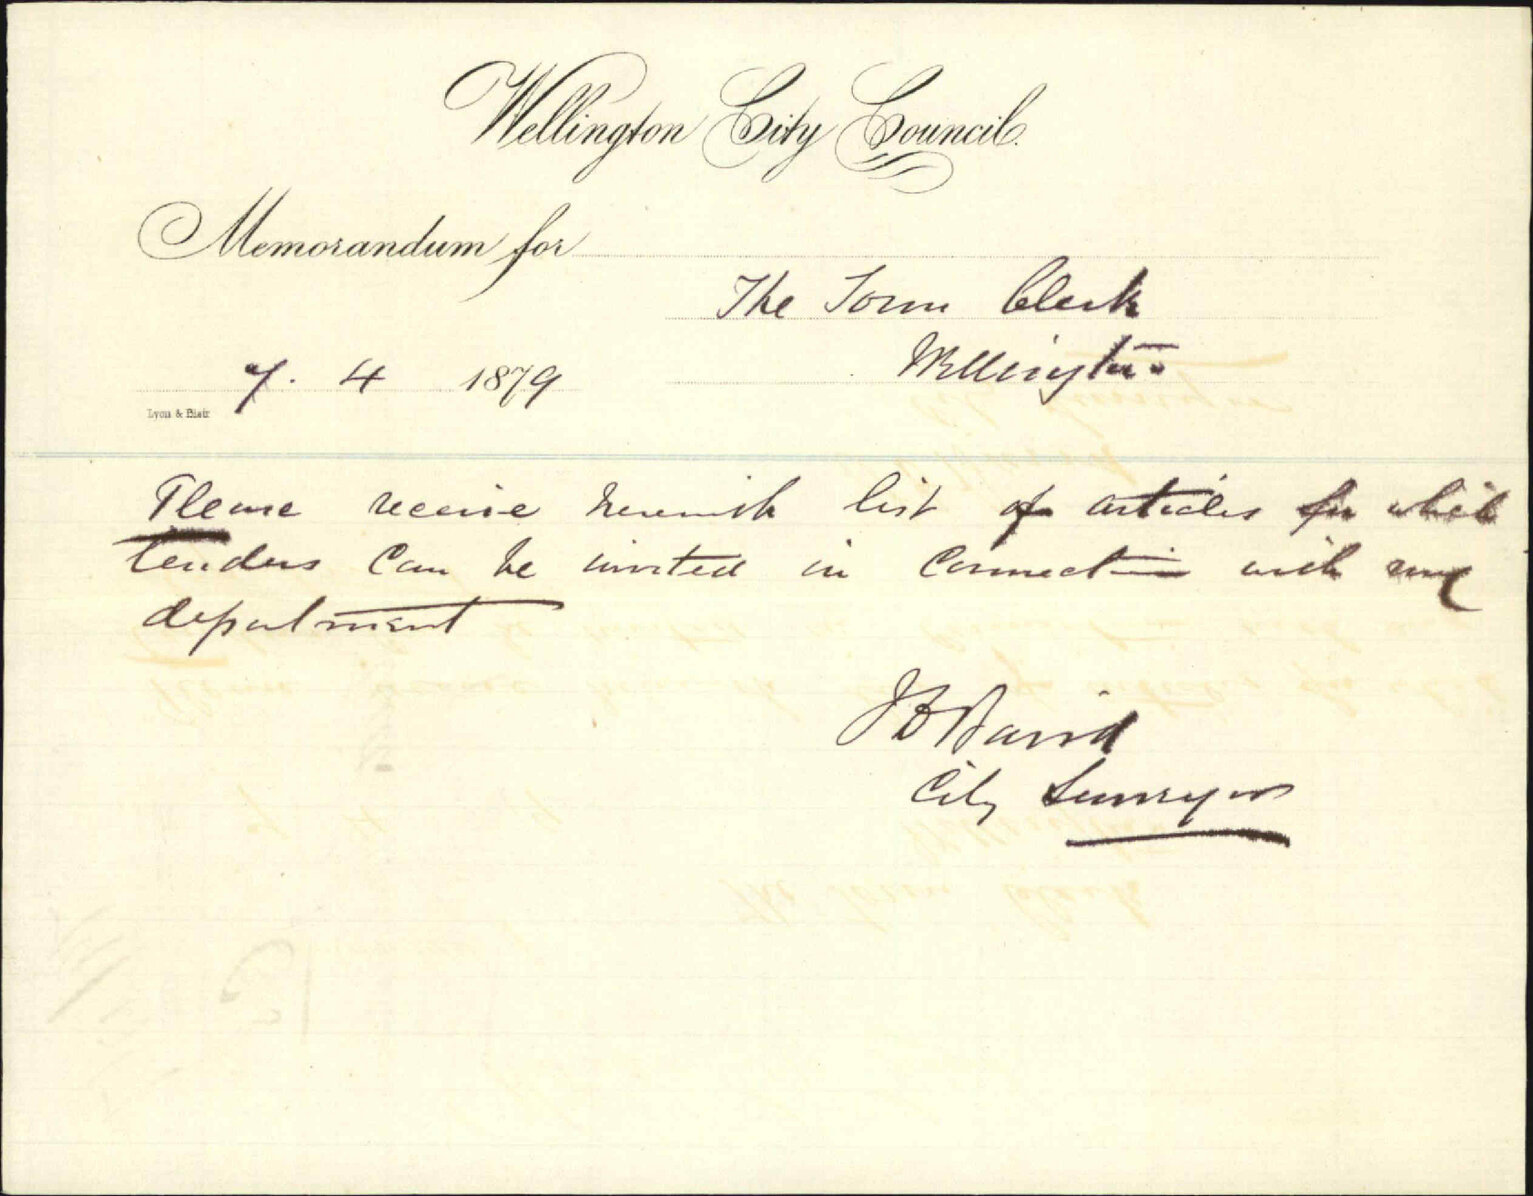 Wellington City Council.
Memorandum for
The Town Clerk
Wellington
7. 4 1879
Lyon & Blair
Please receive herewith list of articles for which
tenders can be invited in connection with my
department
J D Baird
City Surveyor